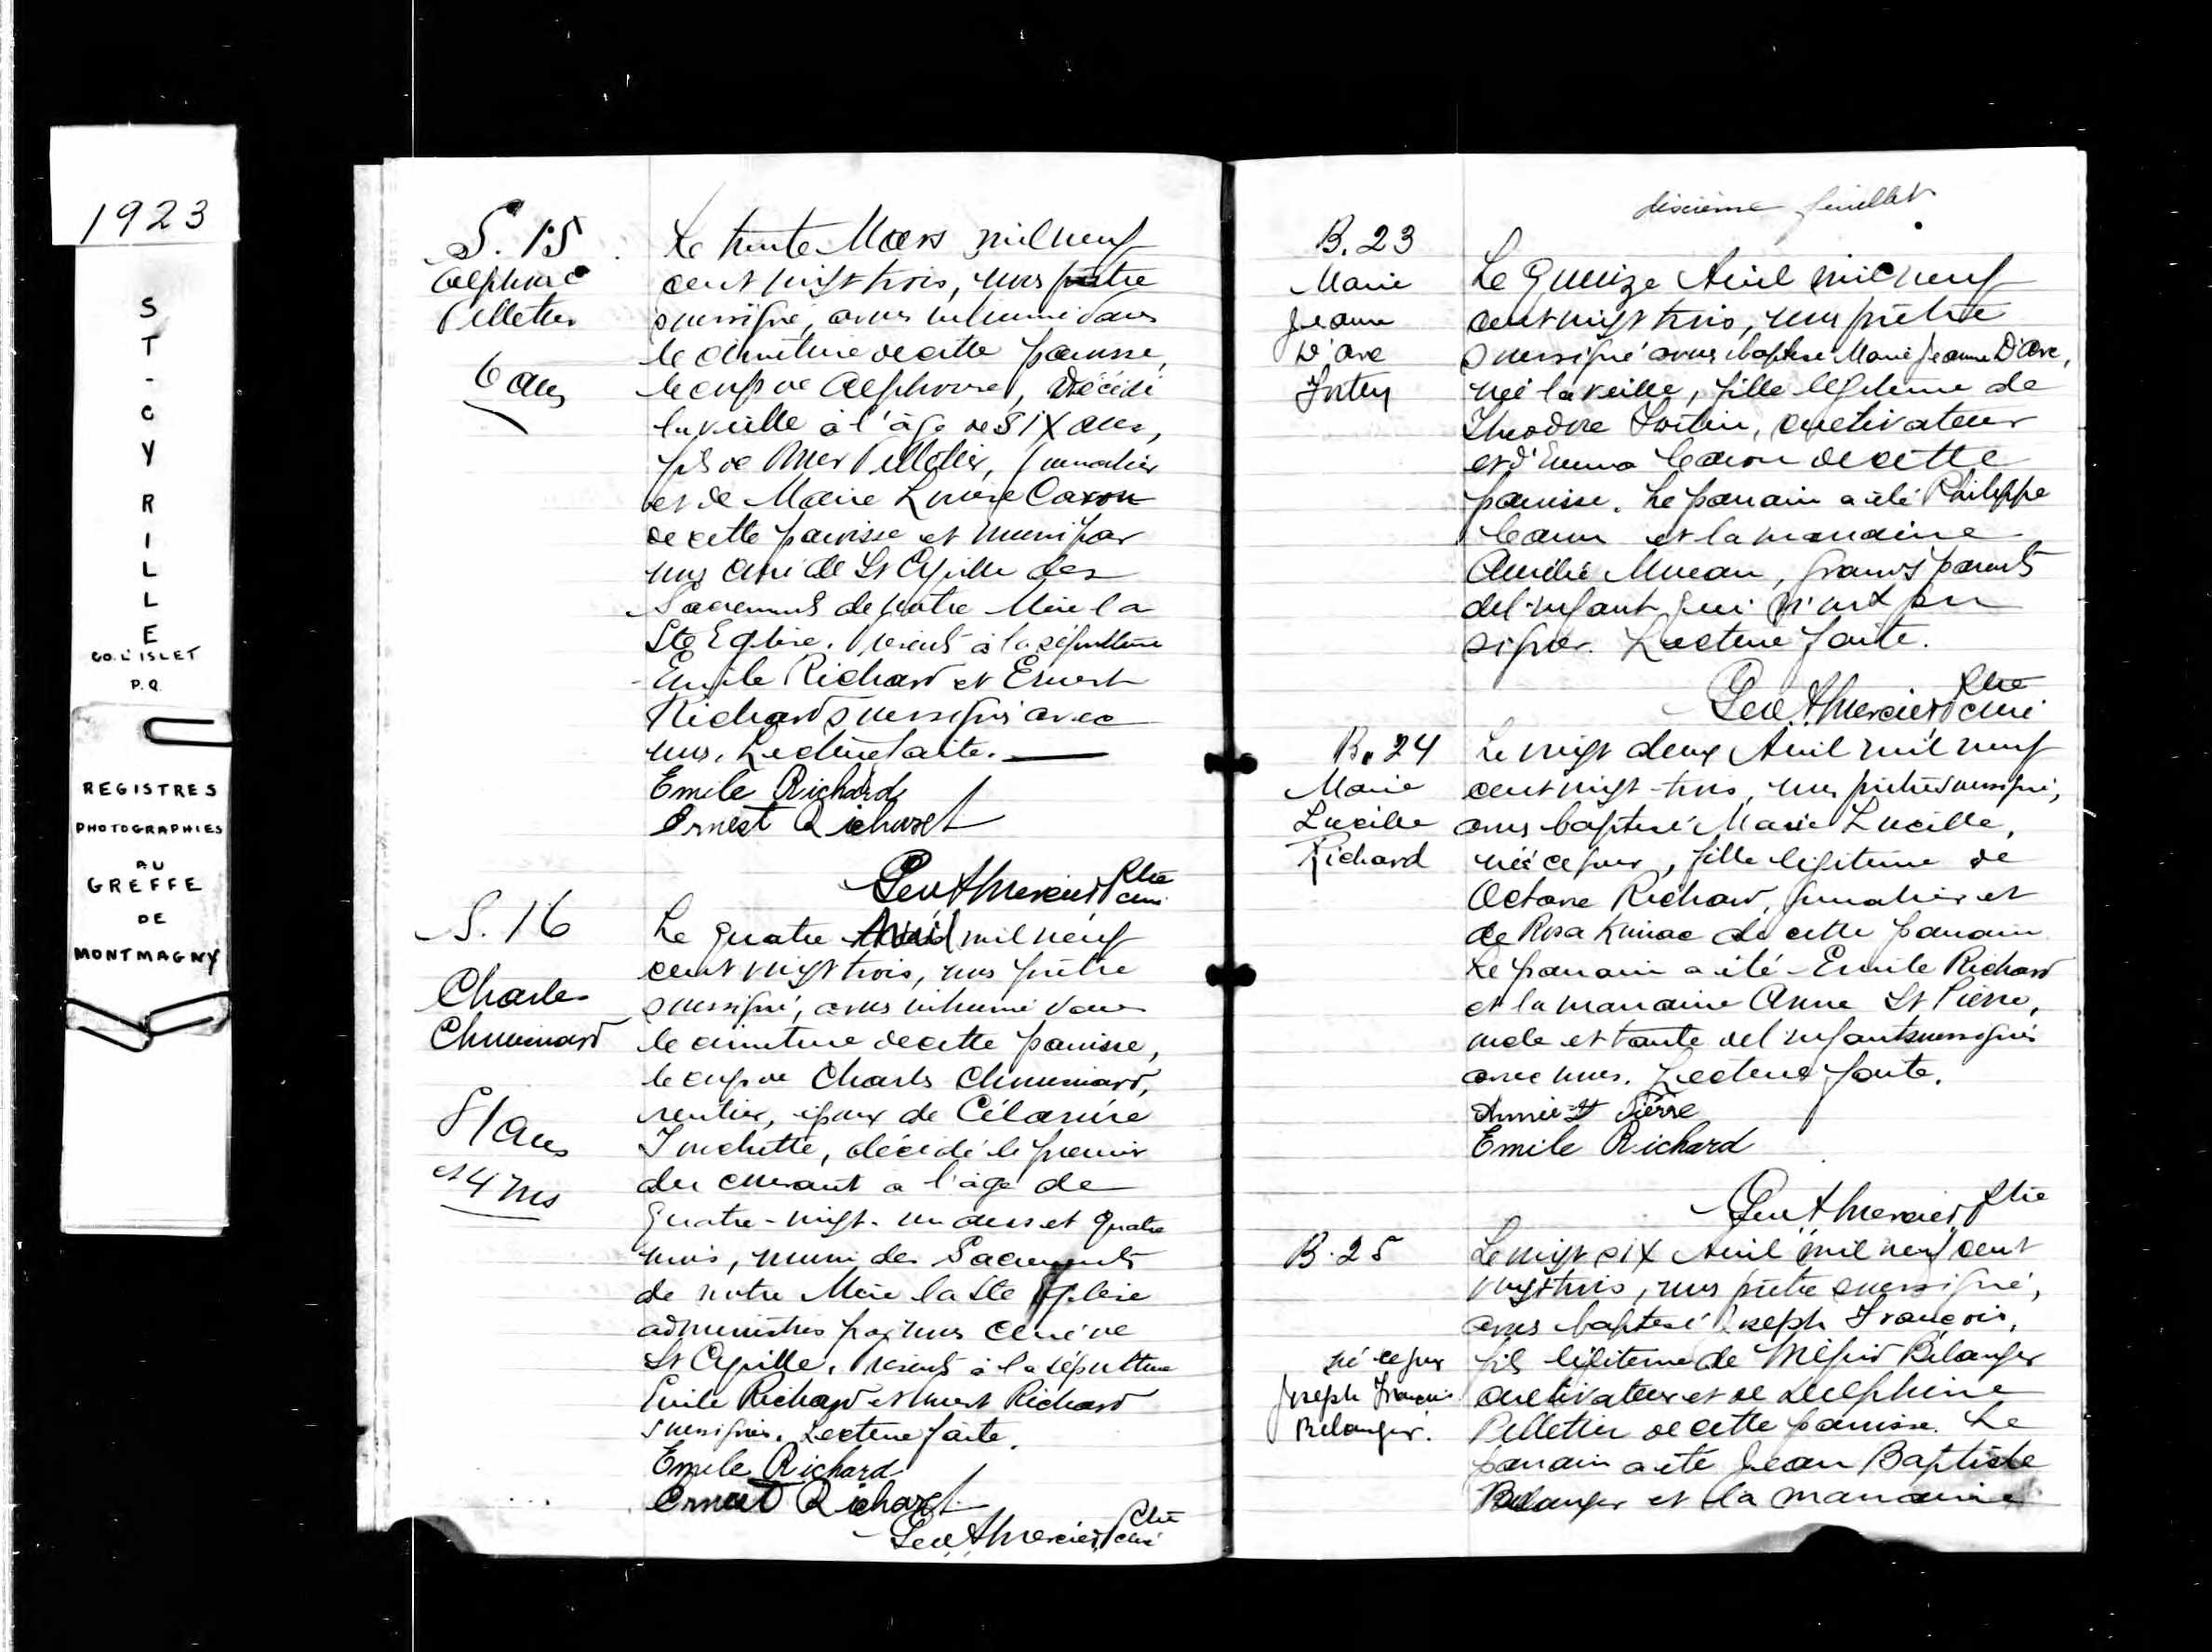 1923
ST-CYRILLE
CO. L'ISLET
P.Q.
REGISTRES
PHOTOGRAPHIES
AU
GREFFE
DE
MONTMAGNY
S. 15
Alphonse
Pelletier
6 ans
Le trente Mars mil neuf
cent vingt trois, nous prêtre
soussigné, avons inhumé dans
le cimetière de cette paroisse,
le corps de Alphonse, décédé
la veille à l'âge de six ans,
fils de Pelletier, journalier
et de Marie Caron
de cette paroisse et muni par
nous curé de St Cyrille des
Sacrements de notre Mère la
Ste Eglise. Présents à la sépulture
Emile Richard et Ernest
Richard soussignés avec
nous. Lecture faite.
Emile Richard
Ernest Richard
Geo A Mercier Ptre
curé
S. 16
Charles
Chouinard
81 ans
et 4 ms
Le quatre Avril mil neuf
cent vingt trois, nous prêtre
soussigné, avons inhumé dans
le cimetière de cette paroisse,
le corps de Charles Chouinard,
rentier, époux de Célanire
décédé le premier
du courant a l'âge de
quatre-vingt-un ans et quatre
mois, muni des Sacrements
de notre Mère la Ste Eglise
administrés par nous curé de
St Cyrille. Présents à la sépulture
Emile Richard et Ernest Richard
soussignés. Lecture faite.
Emile Richard
Ernest Richard
Geo A Mercier Ptre
curé
dixième feuillet
B. 23
Marie
Jeanne
D'arc
Fortin
Le Quinze Avril mil neuf
cent vingt trois, nous prêtre
soussigné avons baptisé Marie Jeanne D'arc,
née la veille, fille légitime de
Théodore Fortin, cultivateur
et d'Emma Caron de cette
paroisse. Le parrain a été Philippe
Caron et la marraine
Amélie Moreau, grands parents
de l'enfant qui n'ont pu
signer. Lecture faite.
Geo A Mercier Ptre
curé
B. 24
Marie
Lucille
Richard
Le vingt deux Avril mil neuf
cent vingt-trois, nous prêtre soussigné,
avons baptisé Marie Lucille,
née ce jour, fille légitime de
Octave Richard, journalier et
de Rosa de cette parrain
Le parrain a été Emile Richard
et la marraine Anna St Pierre,
oncle et tante de l'enfant soussignés
avec nous. Lecture faite.
St Pierre
Emile Richard
Geo A Mercier Ptre
B. 25
né ce jour
Joseph François
Bélanger.
Le vingt six Avril mil neuf cent
vingt trois, nous prêtre soussigné,
avons baptisé Joseph François,
fils légitime de Bélanger
cultivateur et de Delphine
Pelletier de cette paroisse. Le
parrain a été Jean Baptiste
Bélanger et la marraine